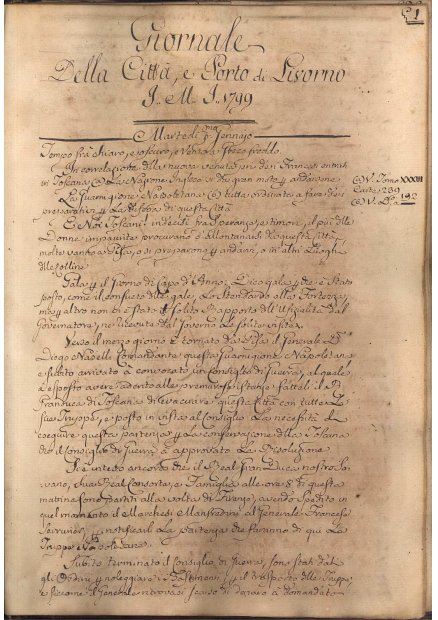 1
Giornale
Della Città, e Porto di Livorno
J. M. J. 1799
Martedì p.mo Gennajo
Tempo frà chiaro, e oscuro, e Vento fresco freddo
In correlazione della nuova venuta di Francesi entrati
in Toscana (a) La Nazione Inglese è in gran moto p andarsene
La Guarnigione Napoletana (b) tutta ordinata a fare
preparativi p La di questa Città
E Noi Toscani indecisi frà Speranza, e timori, il più delle
Donne impaurite procurano di allontanarsi da questa Città
molte vanno a Pisa, o si preparano p andarvi, o in altri Luoghi
delle Colline
Gala p il Giorno di Capo d'Anno,
posto, come il consueto delle gale, Lo Stendardo alla Fortezza,
ma p altro non vi è stato il solito Rapporto dell'Ufizialità dal
Governatore, nè ricevuta dal Governo Le solite visite
Verso il mezzo giorno è tornato da Pisa il Generale D.
Diego Naselli Comandante questa Guarnigione Napoletana
e subito arrivato à convocato un Consiglio di Guerra, al quale
à esposto avere aderito alle premurose istanze fattoli il G.
Granduca di Toscana di evacuare questa Città con tutte Le
Sue Truppe, e posto in vista al Consiglio La necessità di
eseguire questa partenza p La conservazione della Toscana
che il Consiglio di Guerra à approvato La Risoluzione
Si è inteso ancora che il Real Gran Duca nostro So-
vrano, Sua Real Consorte, e Famiglia alle ore 8 di questa
mattina sono partiti alla volta di Firenze, avendo Spedito in
quel momento il Marchese Manfredini al Generale Francese
Serrurier, p notificarli La partenza che faranno di quà Le
Truppe Napoletane
Subito terminato il Consiglio di Guerra, sono stati dati
gli Ordini p noleggiare i Bastimenti p il trasporto delle Truppe
e siccome il Generale ritrovasi scarso di denaro à domandato
(a) V. Tomo XXXIII
Carte 289
(b) V. D.a 192